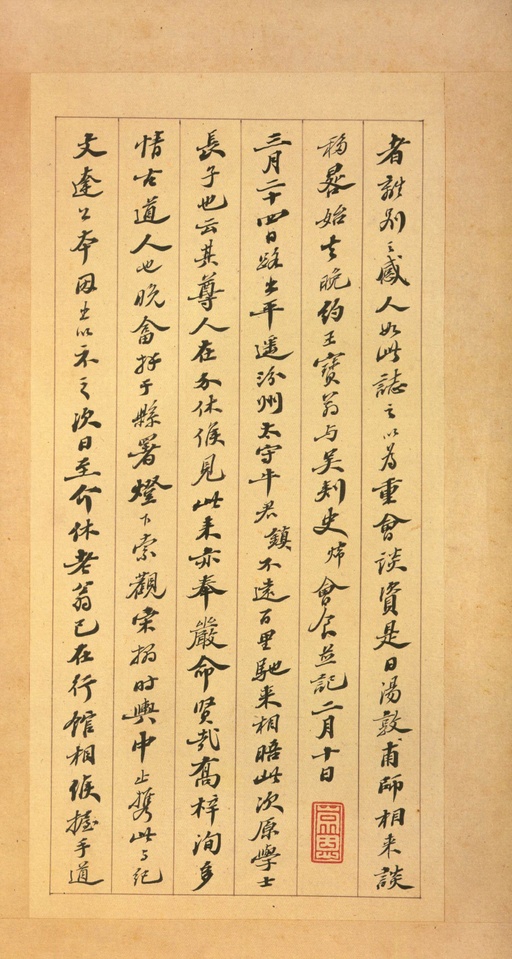 者話別之感人如此誌之以為重會談資是日湯敦甫師相来談
移晷始去晩約王寶翁与吴刺史煒會食並記二月十日
三月二十四日路出平遥汾州太守牛君鎮不遠百里馳来相晤此次原學士
長子也云其尊人在介休候見此来亦奉嚴命賢哉喬梓洵多
情古道人也晩飡拜于縣署燈下索觀宋搨时輿中止携此与纪
文達公本因出以示之次日至介休老翁已在行馆相候握手道